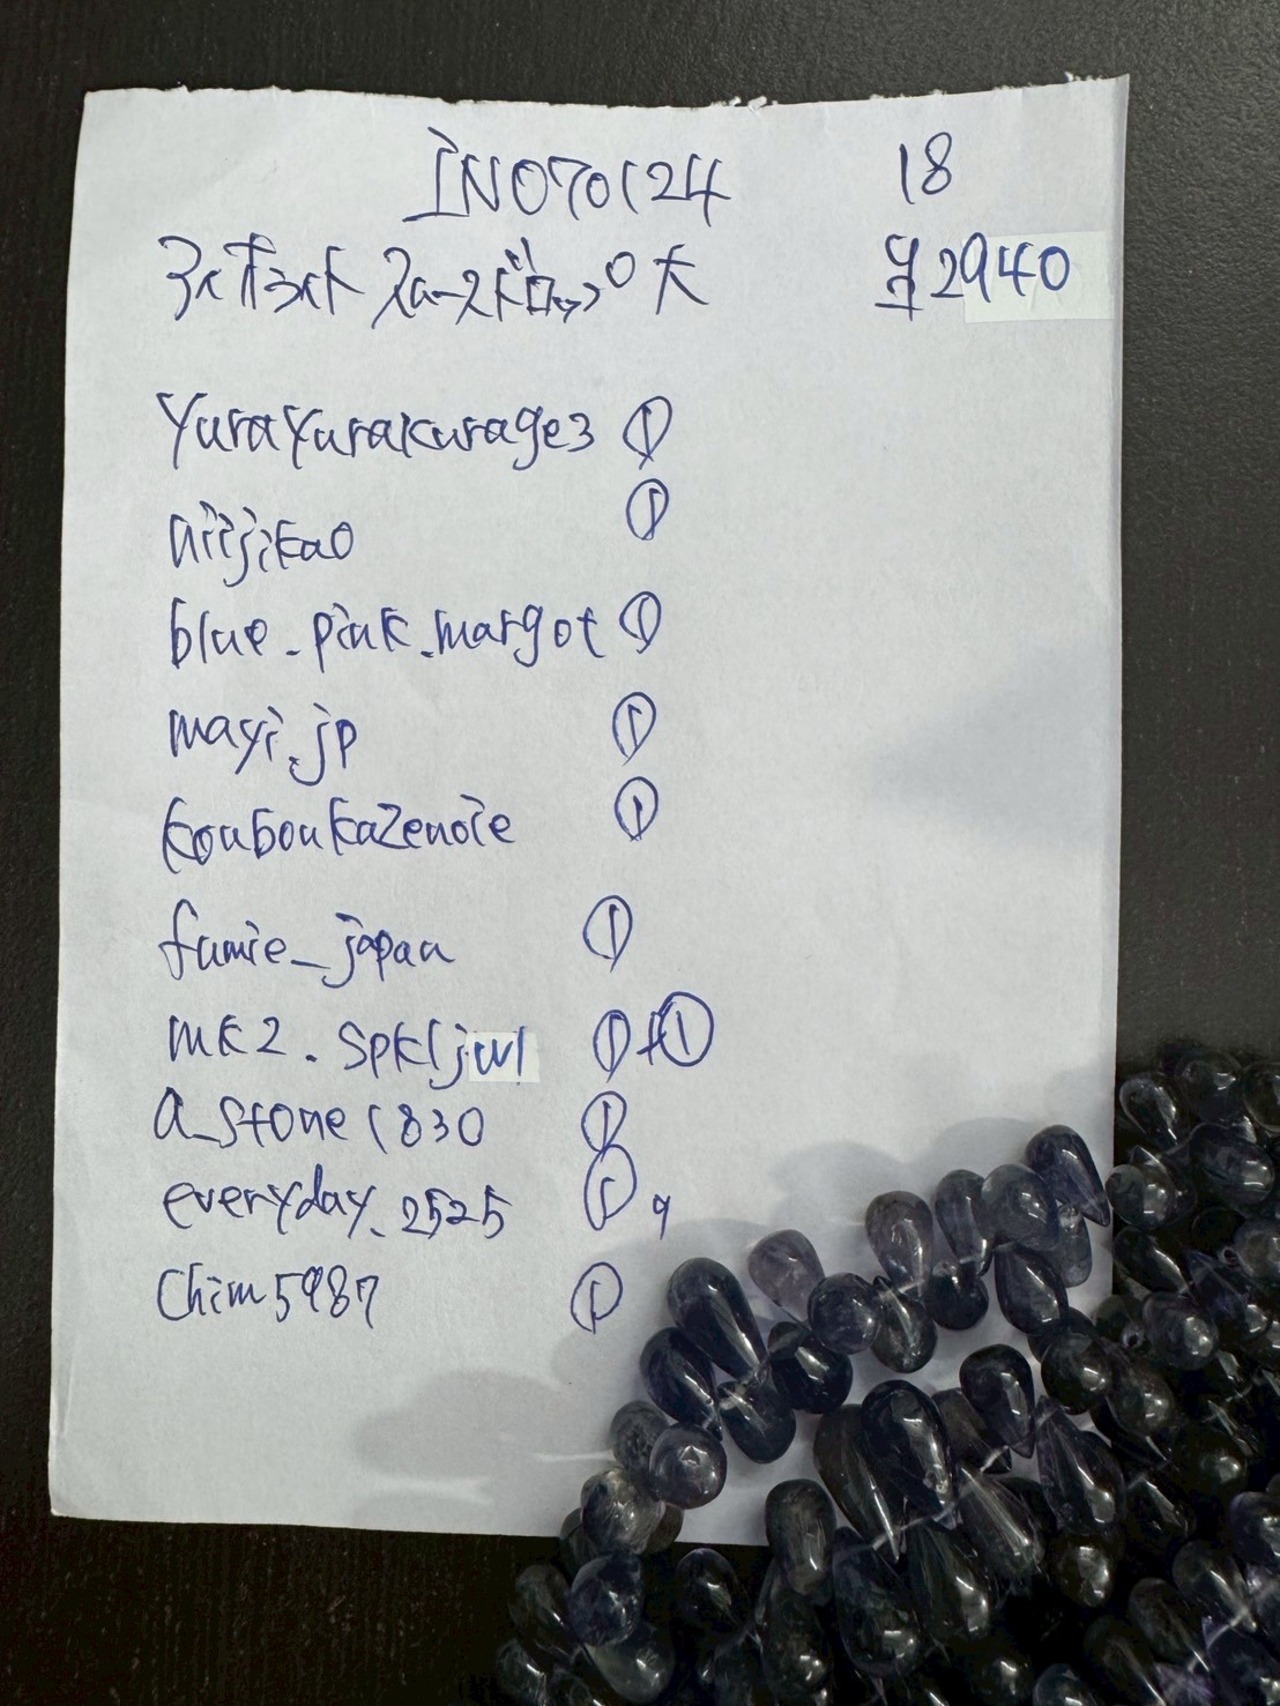 INO70124 18
アイオライト スムースドロップ 大 ¥2940
yurayurakurage3 ①
niijikao ①
blue_pink_margot ①
mayi.jp ①
kouboukazenoie ①
fumie_japan ①
mk2.spkljwl ①+①
a_stone1830 ①
everyday_2525 ① 9
Chim5987 ①